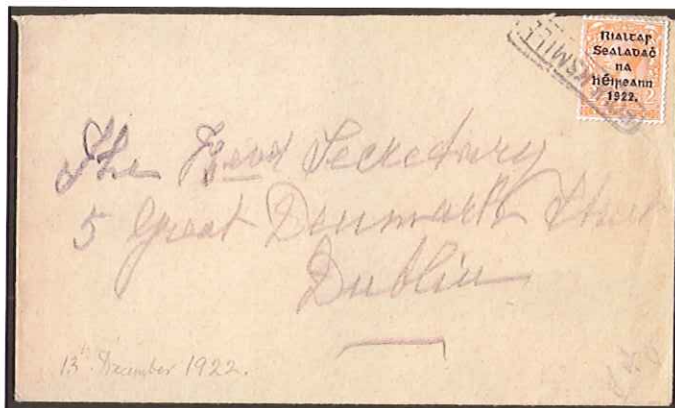 Rialtas
Sealadaċ
na
hÉireann
1922.
The Head Secretary
5 Great Denmark Street
Dublin
13th December 1922.